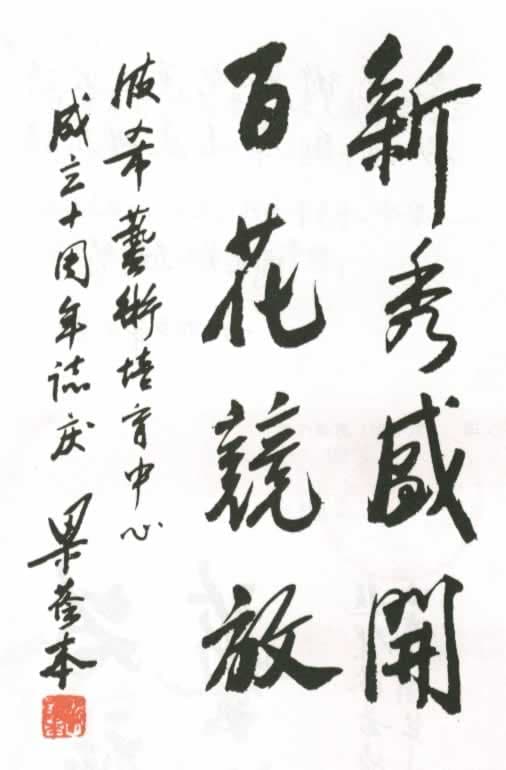 新秀盛開
百花競放
波希藝術培育中心
成立十周年誌庆
梁荃本